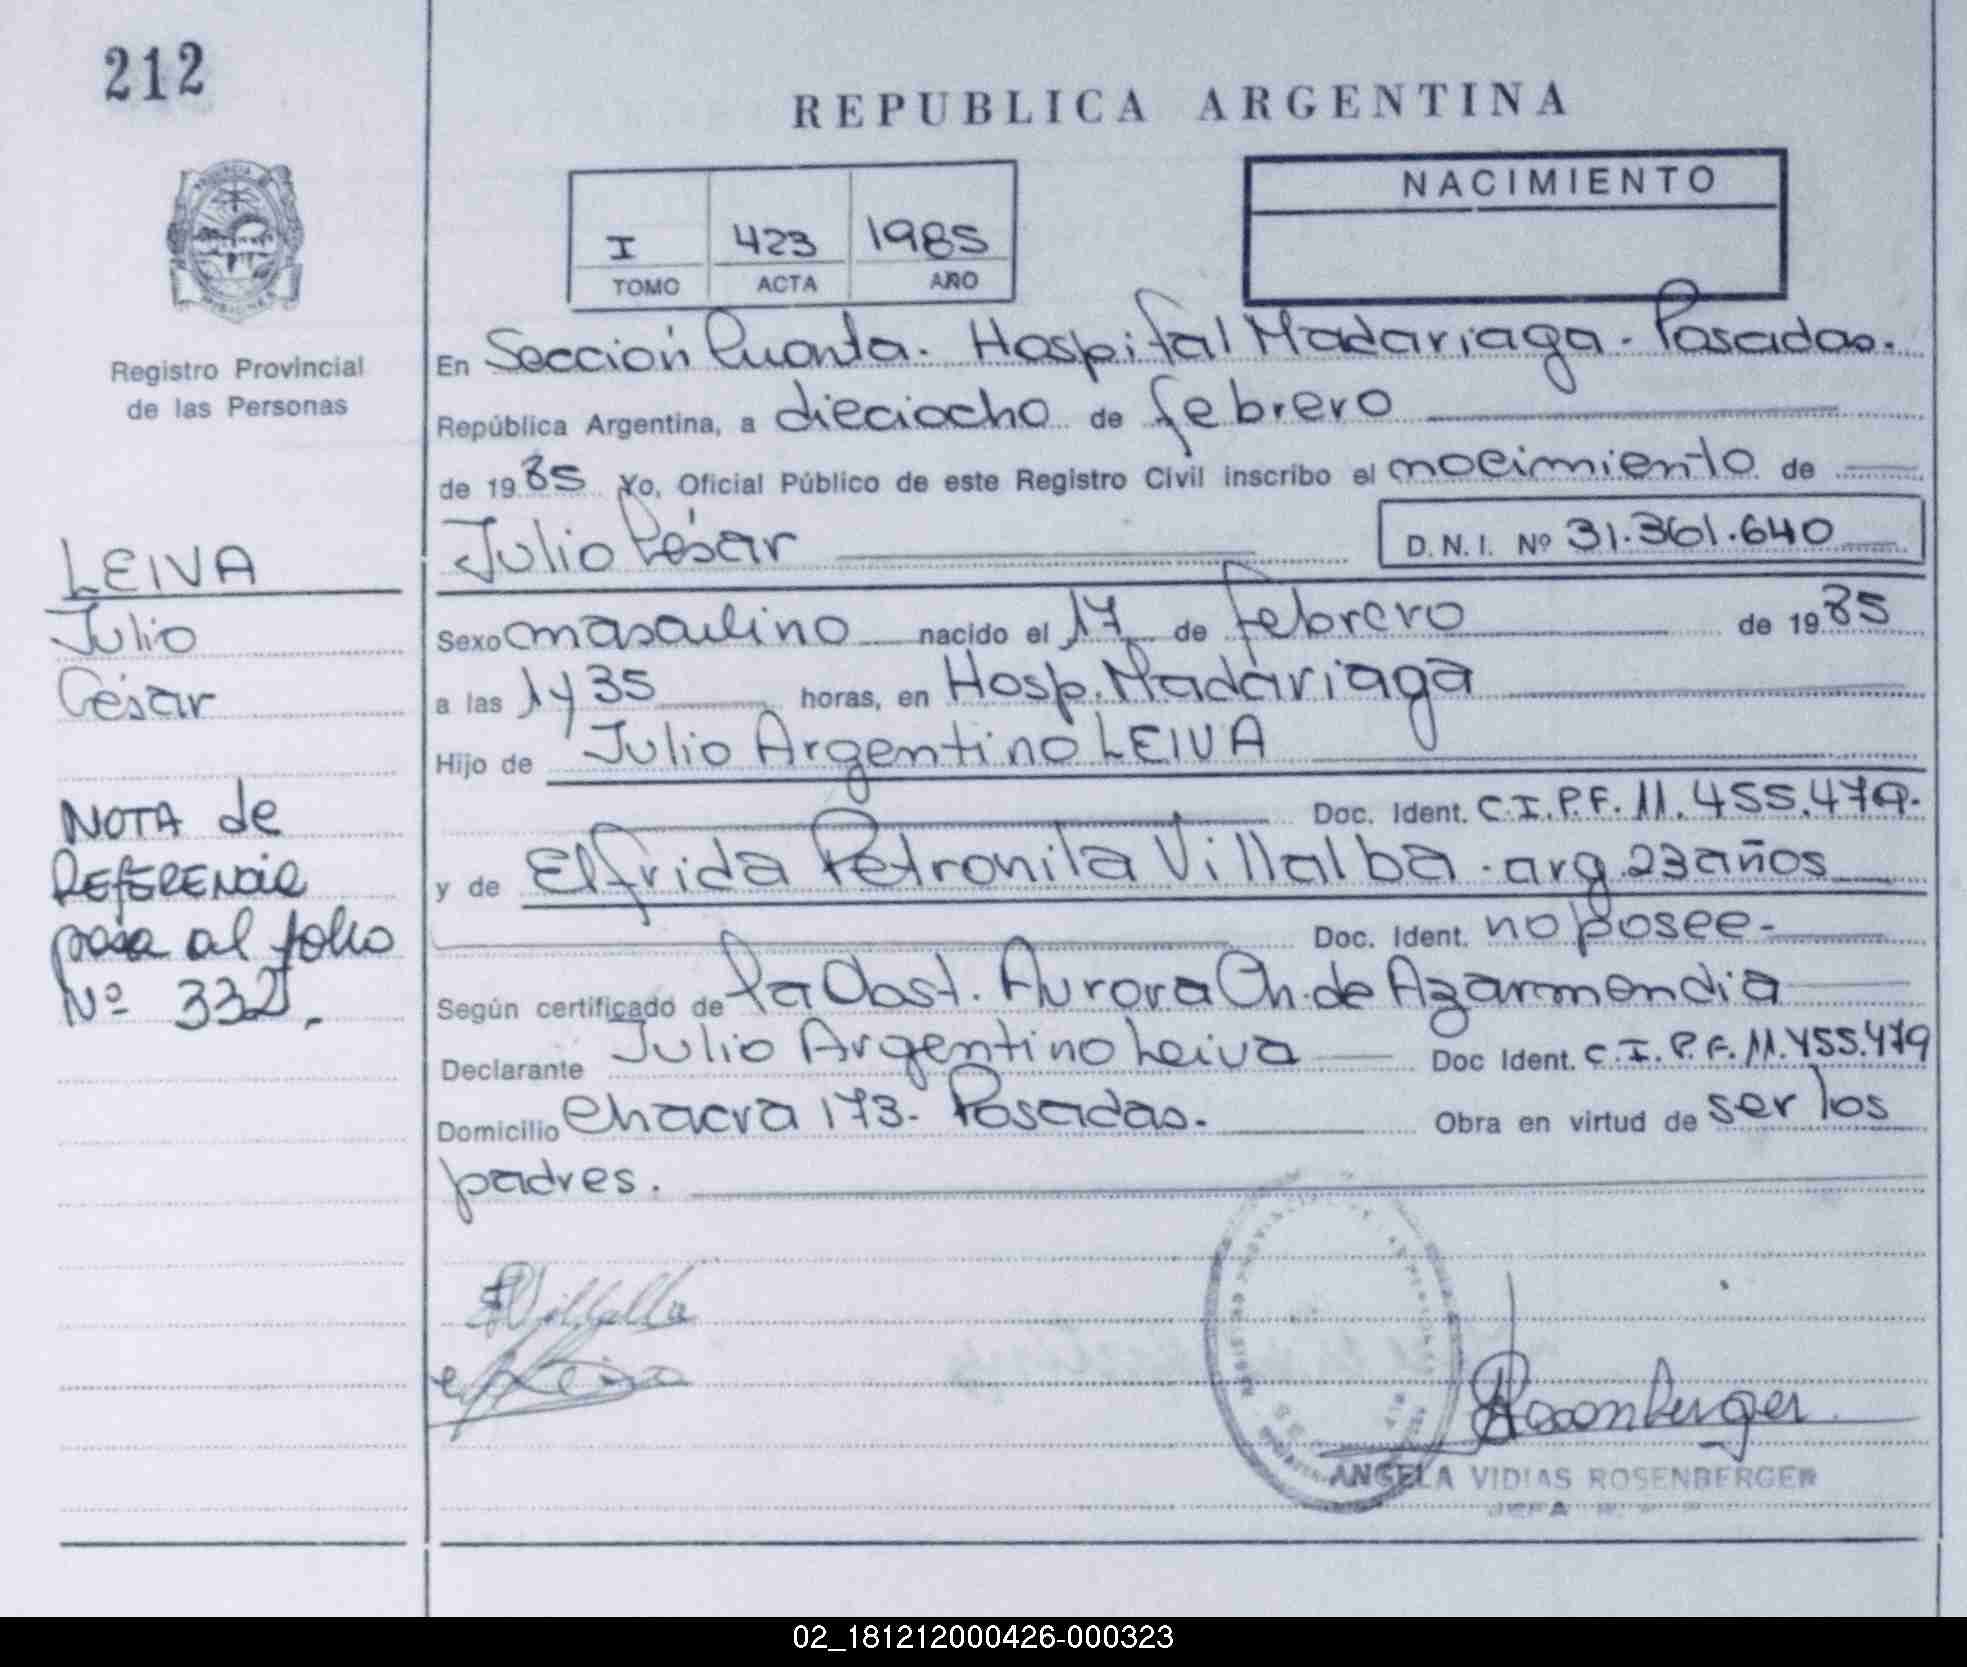 212
REPUBLICA ARGENTINA
NACIMIENTO
I 423 1985
TOMO ACTA AÑO
Registro Provincial
de las Personas
En Sección Cuarta. Hospital Madariaga - Posadas.
República Argentina, a dieciocho de febrero
de 1985 Yo, Oficial Público de este Registro Civil inscribo el nacimiento de
Julio César D.N.I. Nº 31.361.640
LEIVA
Julio
César
Sexo masculino nacido el 17 de febrero de 1985
a las 1 y 35 horas, en Hosp. Madariaga
Hijo de Julio Argentino LEIVA
Doc. Ident. C.I.P.F. 11.455.479.
y de Elfrida Petronila Villalba - arg. 23 años
Doc. Ident. no posee.-
NOTA de
REFERENCIA
pasa al folio
Nº 332.
Según certificado de la Obst. Aurora Ch. de Azarmendia
Declarante Julio Argentino Leiva Doc Ident. C.I.P.F. 11.455.479
Domicilio Chacra 173 - Posadas. Obra en virtud de ser los
padres.
EVillalba
Leiva
Rosenberger
ANGELA VIDIAS ROSENBERGER
JEFA
02_181212000426-000323